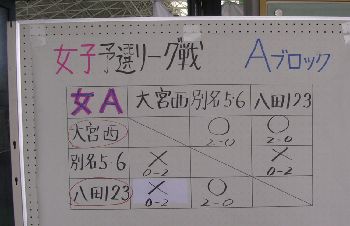 女子予選リーグ戦 Aブロック
女A 大宮西 別名5·6 八田123
大宮西 ○ 2-0 ○ 2-0
別名5·6 × 0-2 × 0-2
八田123 × 0-2 ○ 2-0